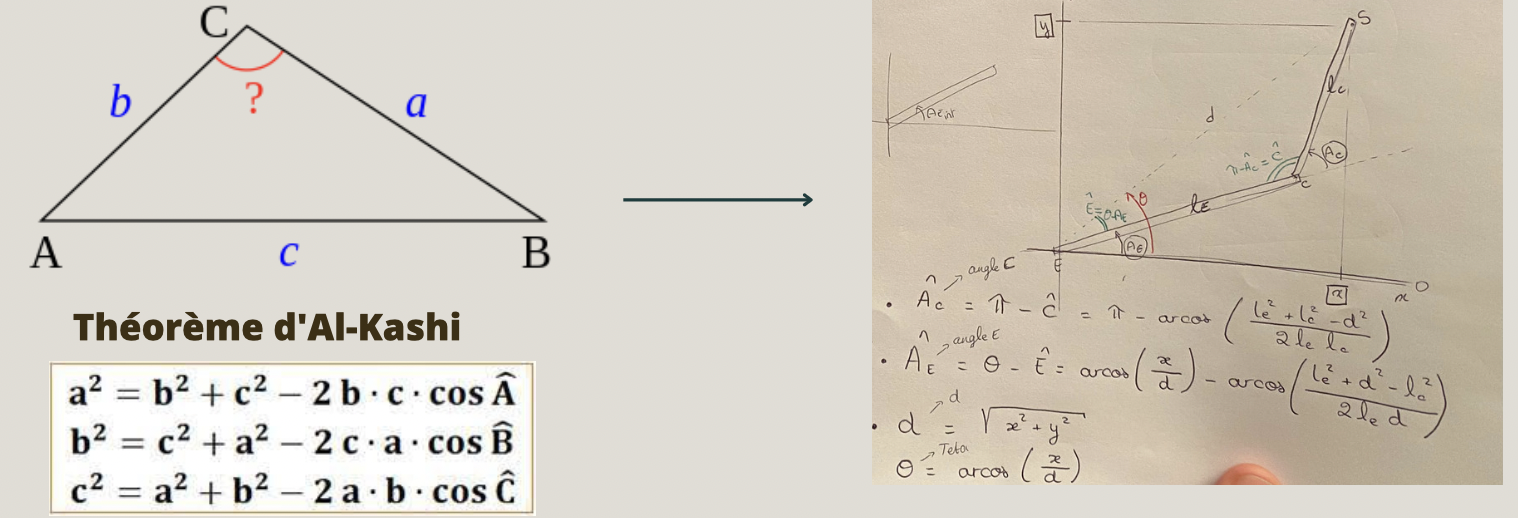 C
b
?
a
A
c
B
Théorème d'Al-Kashi
a² = b² + c² − 2 b · c · cos Â
b² = c² + a² − 2 c · a · cos B̂
c² = a² + b² − 2 a · b · cos Ĉ
y
S
lc
d
π-Âc = Ĉ
Ac
C
Ê=θ-AE
θ
lE
AE
E
x
x
O
angle C
Âc = π − Ĉ = π − arcos ( (le² + lc² − d²) / (2 le lc) )
angle E
ÂE = θ − Ê = arcos ( x / d ) − arcos ( (le² + d² − lc²) / (2 le d) )
d
d = √(x² + y²)
Teta
θ = arcos ( x / d )